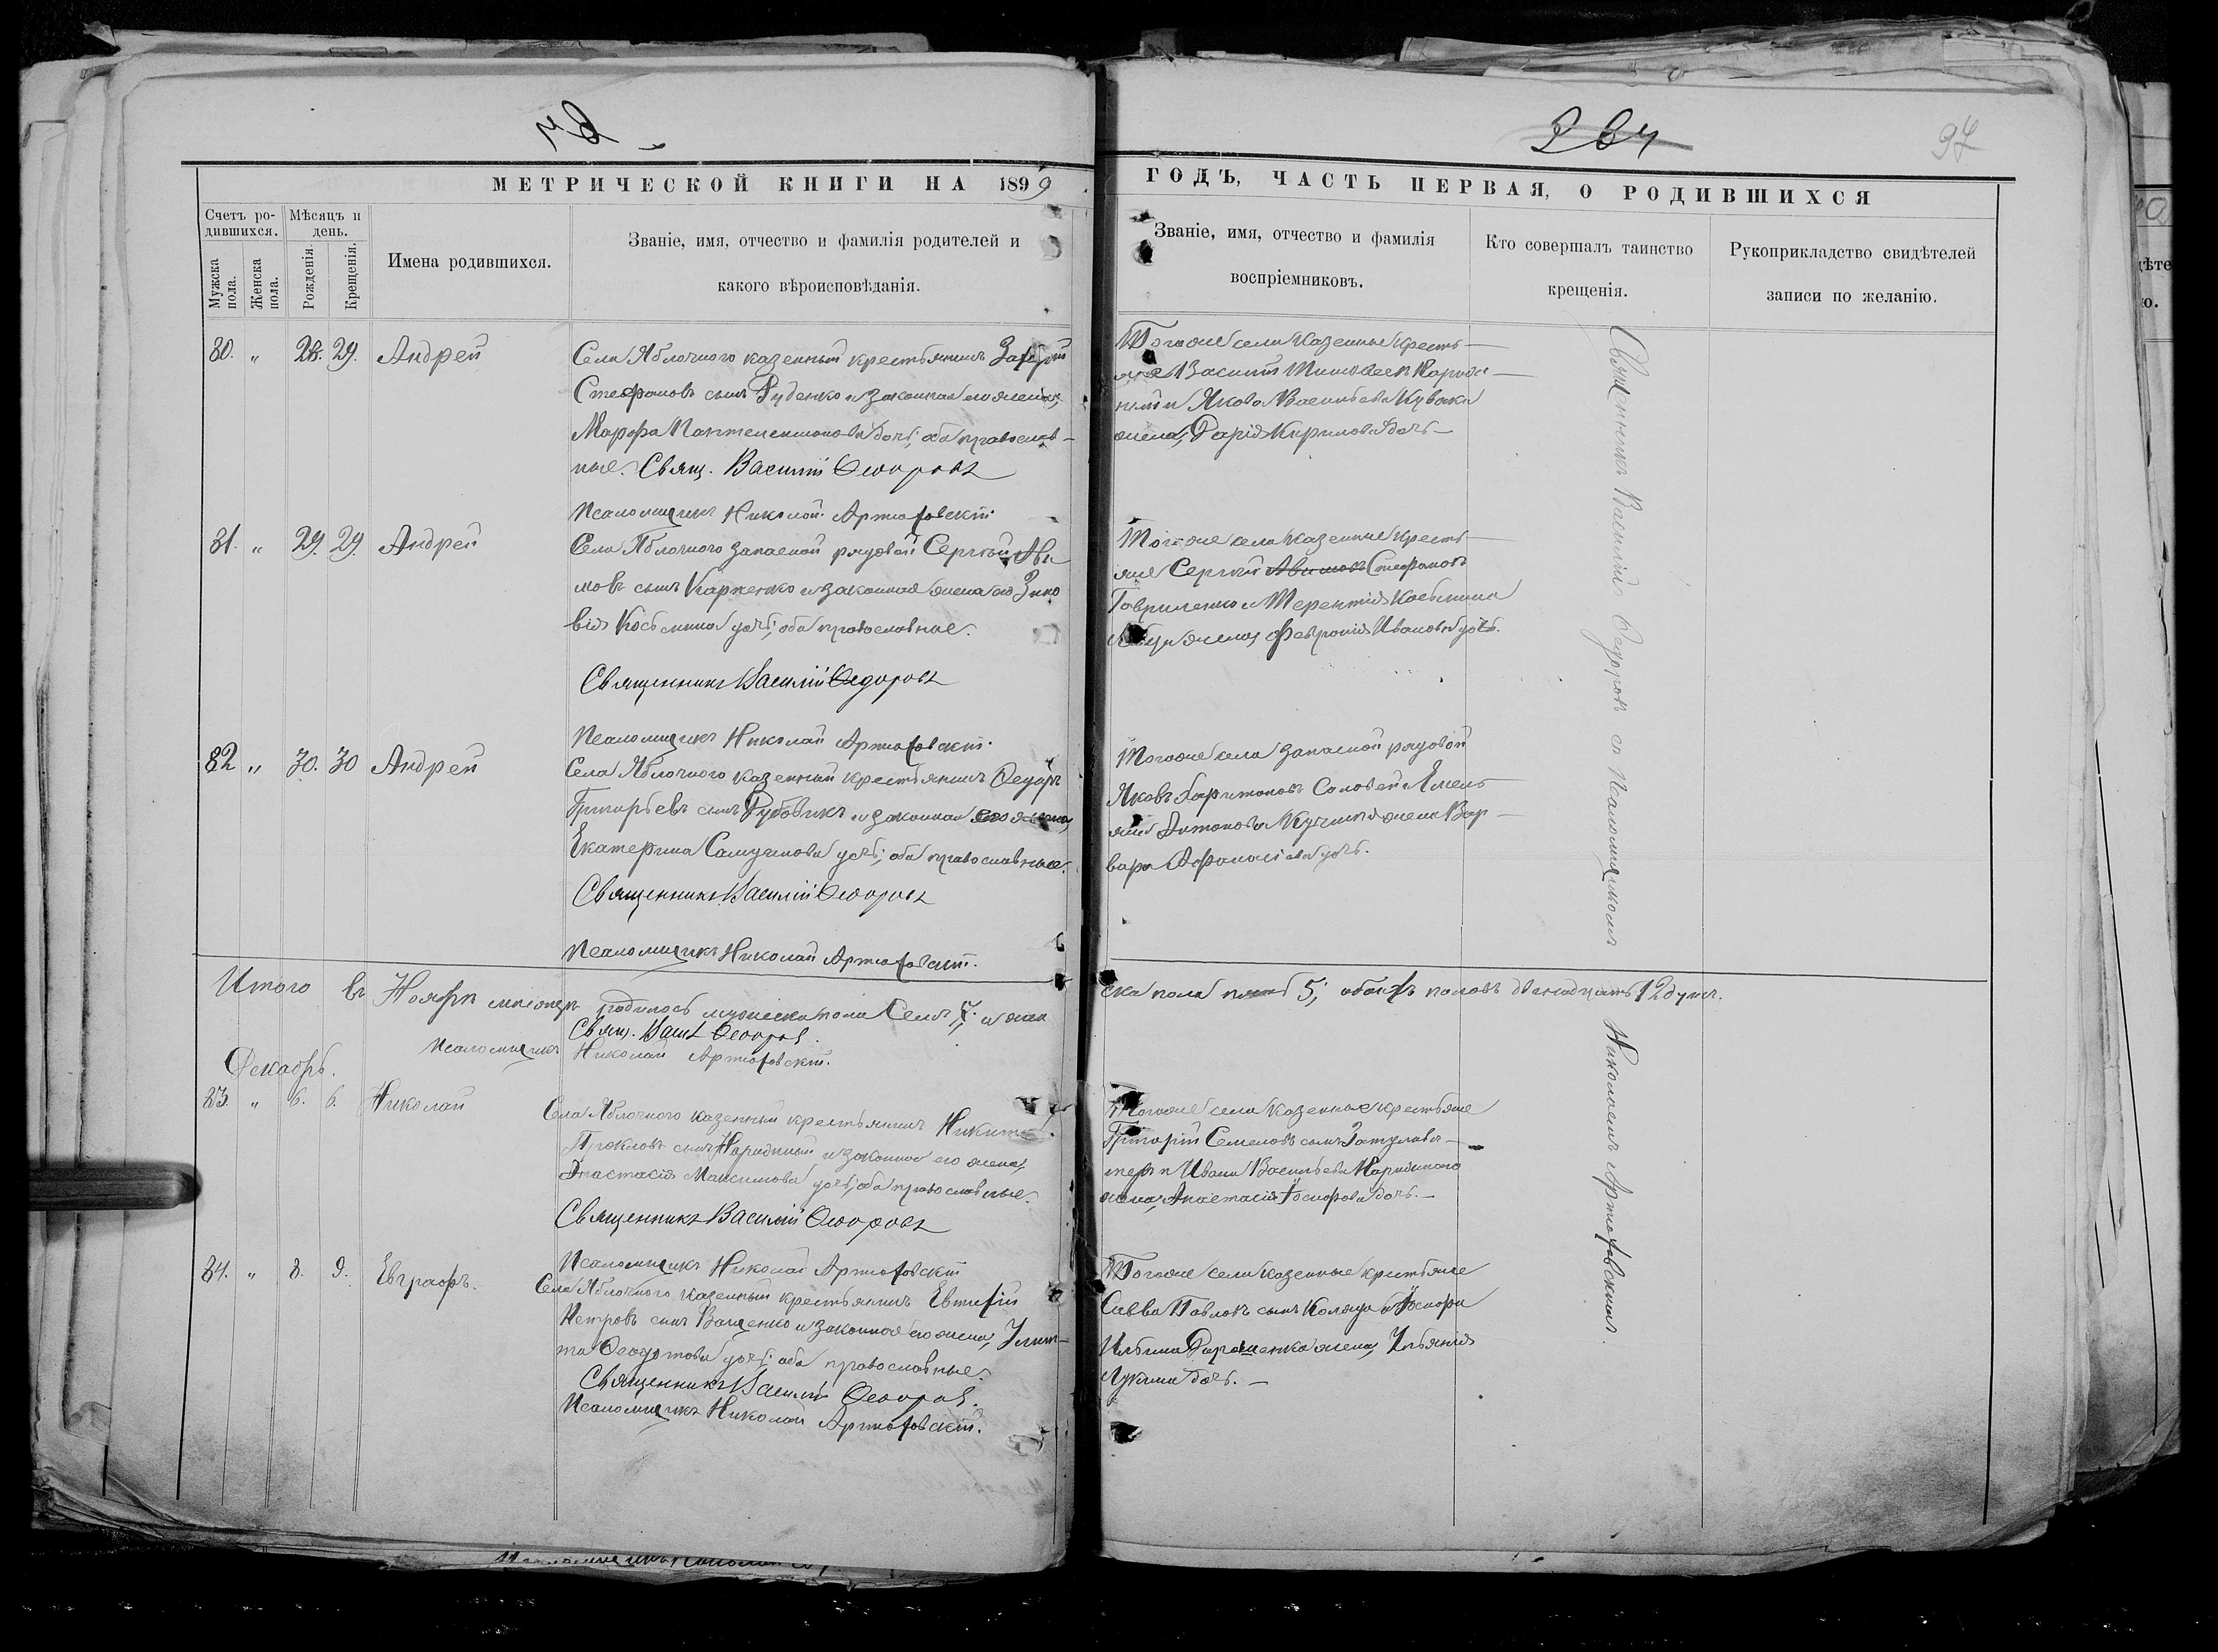 284
97
МЕТРИЧЕСКОЙ КНИГИ НА 1899
ГОДЪ, ЧАСТЬ ПЕРВАЯ, О РОДИВШИХСЯ
Счетъ ро-
дившихся.
Мужска
пола.
Женска
пола.
Мѣсяцъ и
день.
Рожденія.
Крещенія.
Имена родившихся.
Званіе, имя, отчество и фамилія родителей и
какого вѣроисповѣданія.
Званіе, имя, отчество и фамилія
воспріемниковъ.
Кто совершалъ таинство
крещенія.
Рукоприкладство свидѣтелей
записи по желанію.
80. „ 28. 29. Андрей
Села Яблочного казенный крестьянинъ
Стефановъ сынъ Руденко и законная его жена,
Марфа Пантелеимонова дочь; оба православ-
ные. Свящ. Василій Ѳеодоровъ
Псаломщикъ Николай Артюховскій
Тогоже села казенные кресть-
яне Василій Тимоѳеевъ
и Якова Васильева Кувака
жена, Дарія Кирилова дочь
81. „ 29. 29. Андрей
Села Яблочного запасной рядовой Сергій Ави
мовъ сынъ Карпенко и законная жена его Зино
вія Косьмина дочь; оба православные.
Священникъ Василій Ѳедоровъ
Псаломщикъ Николай Артюховскій.
Тогоже села казенные кресть-
яне Сергій Авимовъ Стефановъ
Гавриленко и Терентія Косьмина
жена, Февронія Иванова дочь.
82 „ 30. 30 Андрей
Села Яблочного казенный крестьянинъ Ѳедоръ
Григорьевъ сынъ Рубовикъ и законная его жена,
Екатерина Самуилова дочь; оба православные.
Священникъ Василій Ѳеодоровъ
Псаломщикъ Николай Артюховскій.
Тогоже села запасной рядовой
Яковъ Харитоновъ Соловей и Емель
яна Антонова жена Вар-
вара Афанасіева дочь.
Итого въ Ноябрѣ мѣсяцѣ родилось мужеска пола семь 7; и жен
ска пола пять 5; обоихъ половъ двенадцать 12 душъ.
Свящ. Васил. Ѳеодоров.
Псаломщикъ Николай Артюховскій.
Декабрь.
83. „ 6. 6. Николай
Села Яблочного казенный крестьянинъ Никита
Прокловъ сынъ Нарыжный и законная его жена,
Анастасія Максимова дочь; оба православные.
Священникъ Василій Ѳеодоровъ
Псаломщикъ Николай Артюховскій
Тогоже села казенные крестьяне
Григорій Семеновъ сынъ
и Ивана Васильева Нарыжного
жена, Анастасія Іосифова дочь.
84. „ 8. 9. Евграфъ.
Села Яблочного казенный крестьянинъ Евтихій
Петровъ сынъ Ващенко и законная его жена, Улит-
та Ѳеодотова дочь; оба православные.
Священникъ Василій Ѳеодоров.
Псаломщикъ Николай Артюховскій.
Тогоже села казенные крестьяне
Савва Павловъ сынъ Коляда и Іосифа
Ильина Дорошенка жена, Ульянія
Лукина дочь.
Священникъ Василій Ѳедоровъ съ Псаломщикомъ Николаемъ Артюховскимъ.